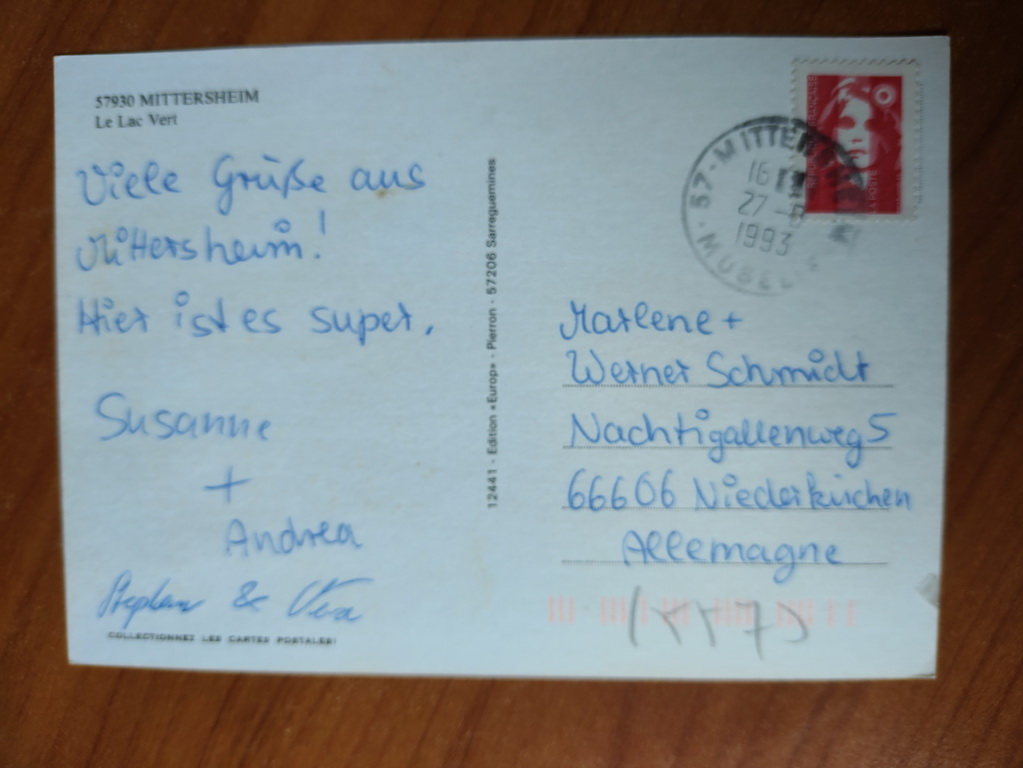 57930 MITTERSHEIM
Le Lac Vert
Viele Grüße aus
Mittersheim!
Hier ist es super.
Susanne
+
Andrea
Stephan & Vera
COLLECTIONNEZ LES CARTES POSTALES!
12441 - Edition «Europ» - Pierron - 57206 Sarreguemines
57 - MITTERSHEIM
16
27 -
1993
LA POSTE
Marlene +
Werner Schmidt
Nachtigallenweg 5
66606 Niederkirchen
Allemagne